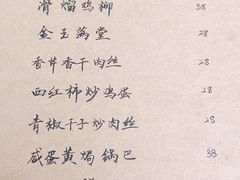 滑熘鸡柳 38
金玉满堂 28
香芹香干肉丝 28
西红柿炒鸡蛋 28
青椒干子炒肉丝 28
咸蛋黄焗锅巴 38